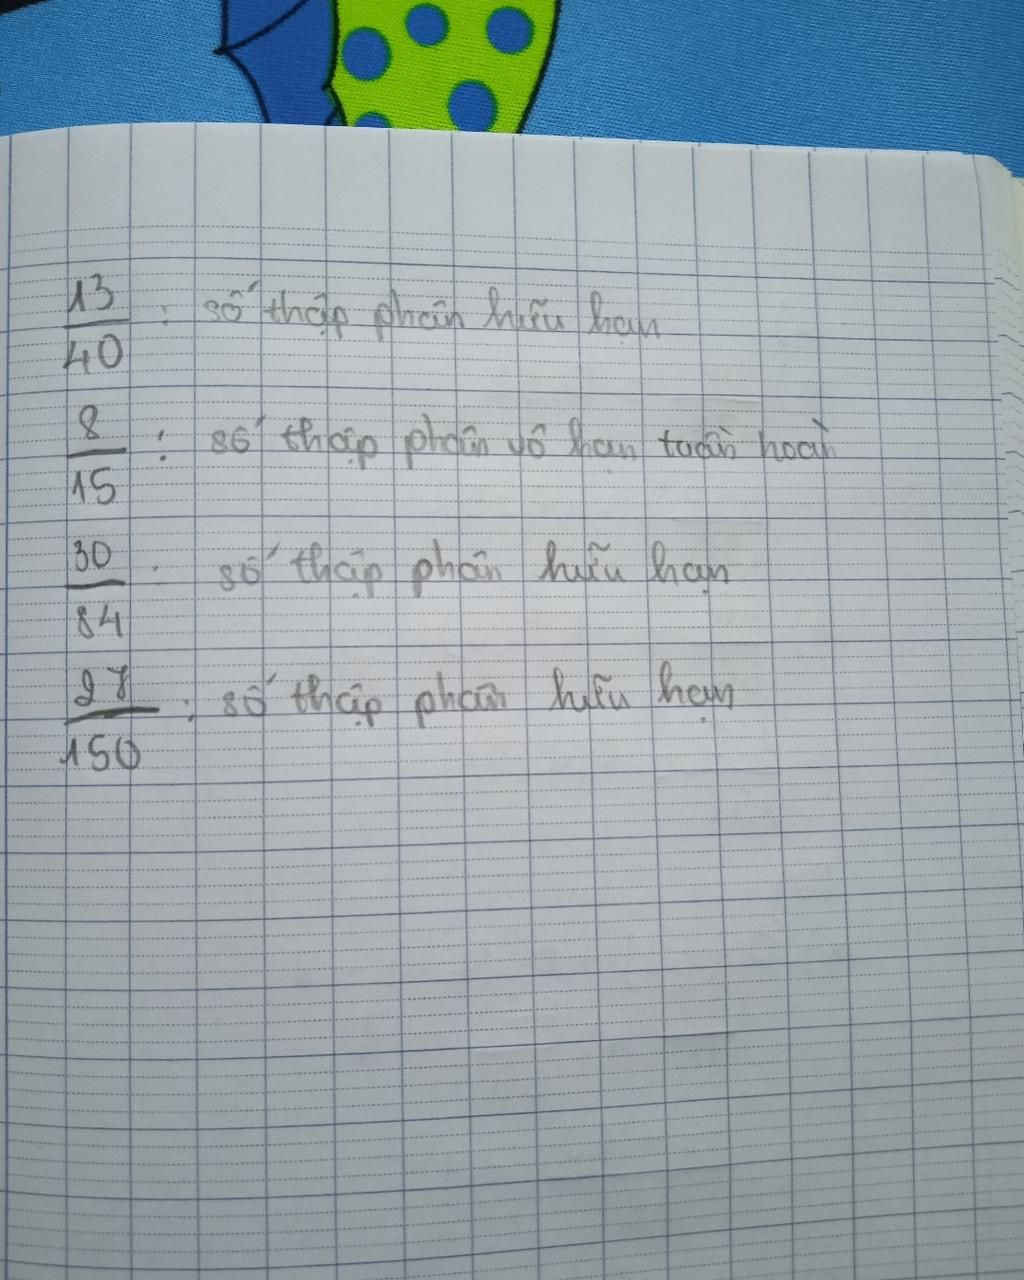 13/40 : số thập phân hữu hạn
8/15 : số thập phân vô hạn tuần hoàn
30/84 : số thập phân hữu hạn
27/150 : số thập phân hữu hạn